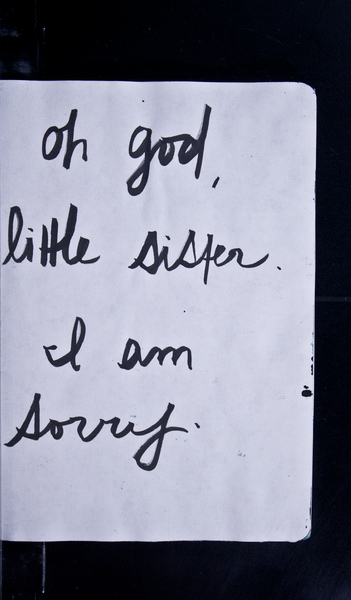 oh god,
little sister.
I am
sorry.